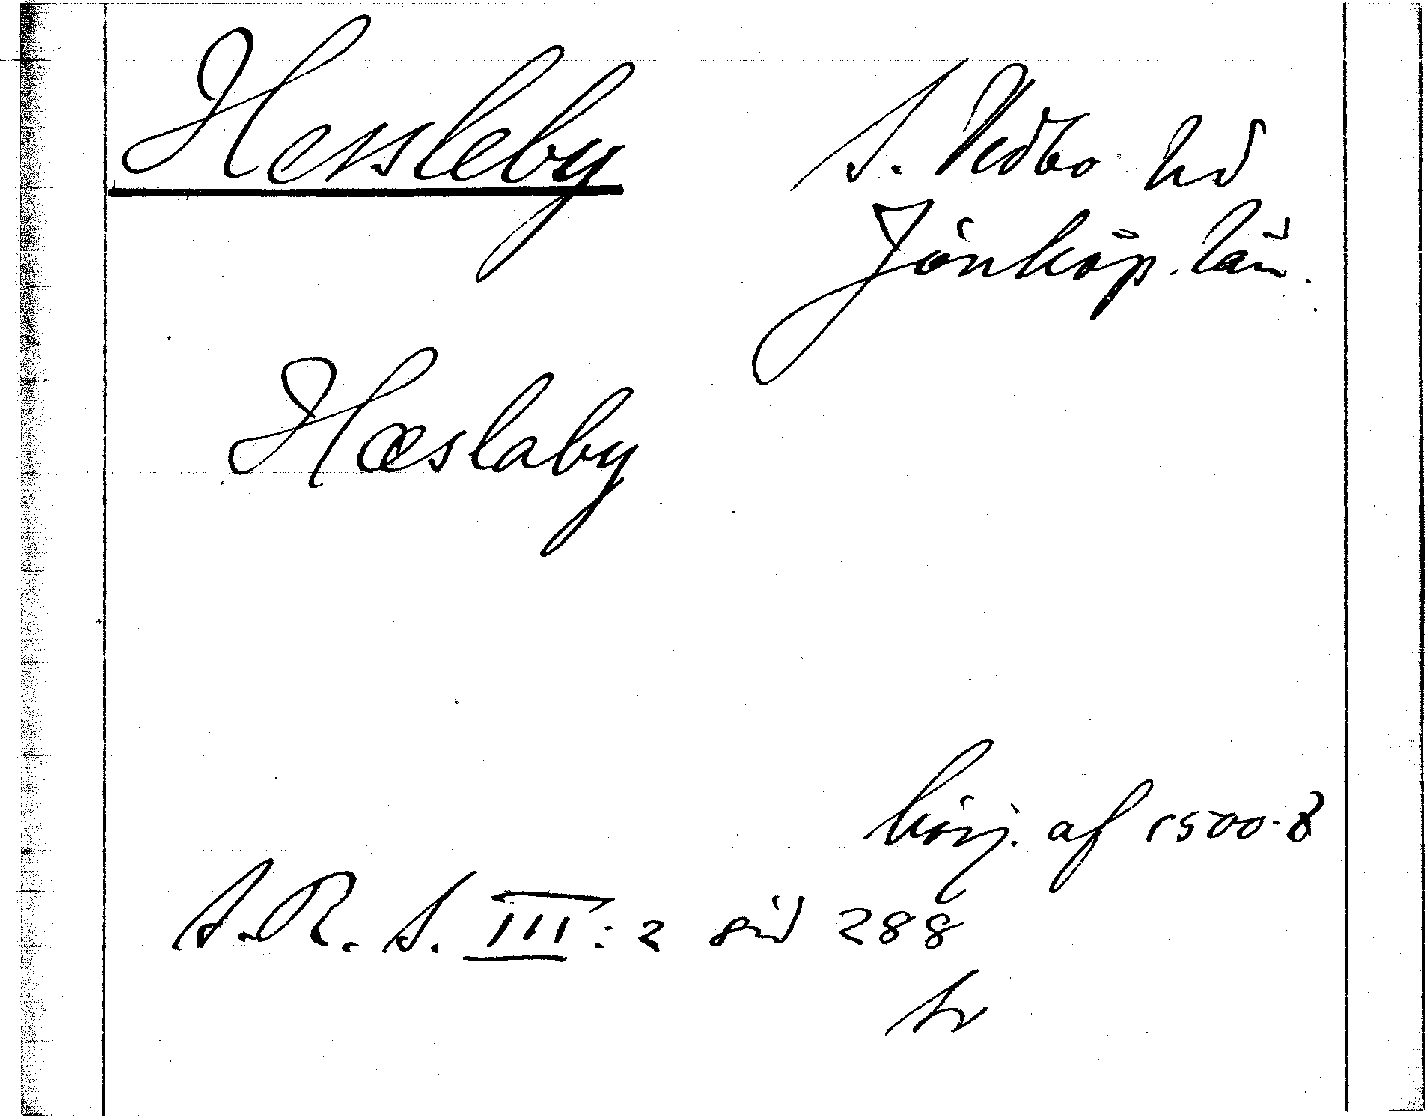 Hessleby
S. Vedbo hd
Jönköp. län.
Hæslaby
börj. af 1500-t
S. R. S. III: 2 sid 288